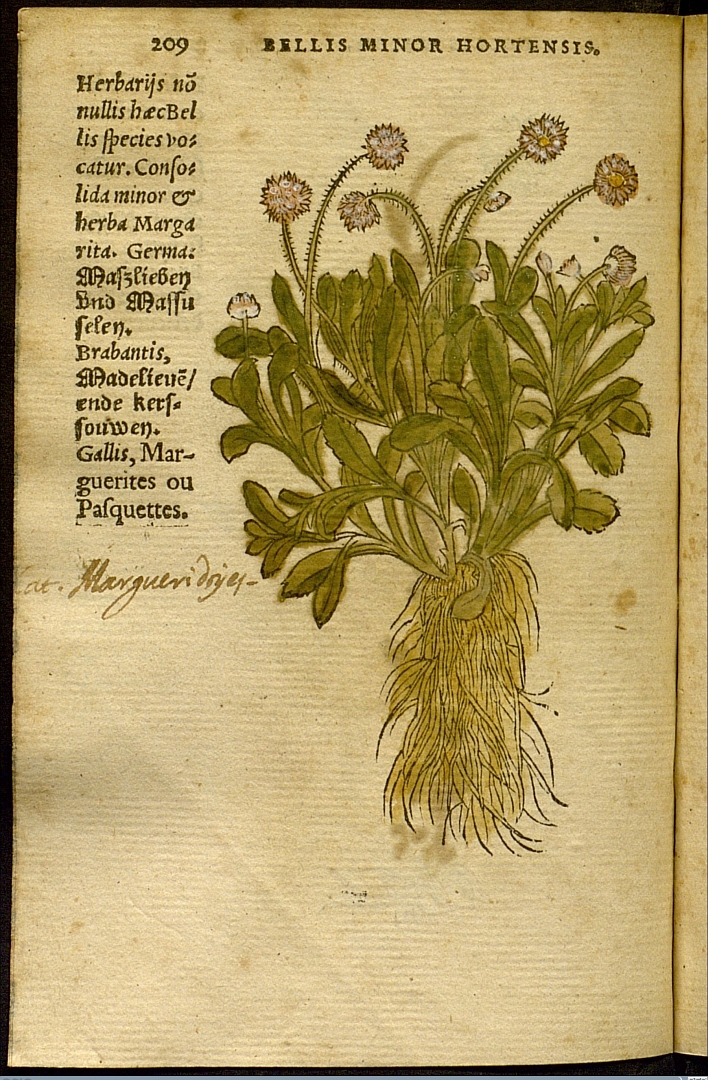 209 BELLIS MINOR HORTENSIS.
Herbarijs nō
nullis hæc Bel
lis ſpecies vo⸗
catur. Conſo⸗
lida minor &
herba Marga
rita. Germa:
Maſzlieben
vnd Maſſu
ſelen.
Brabantis,
Madelieuē/
ende kerſ⸗
ſouwen.
Gallis, Mar-
guerites ou
Paſquettes.